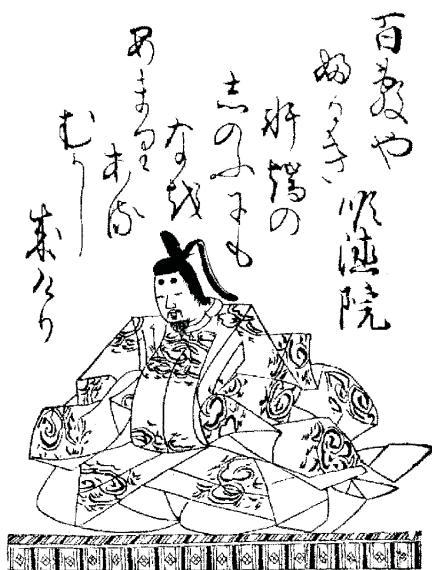 百敷や
順徳院
婦るき
軒端の
志のふにも
な越
あまりある
むかし
成けり